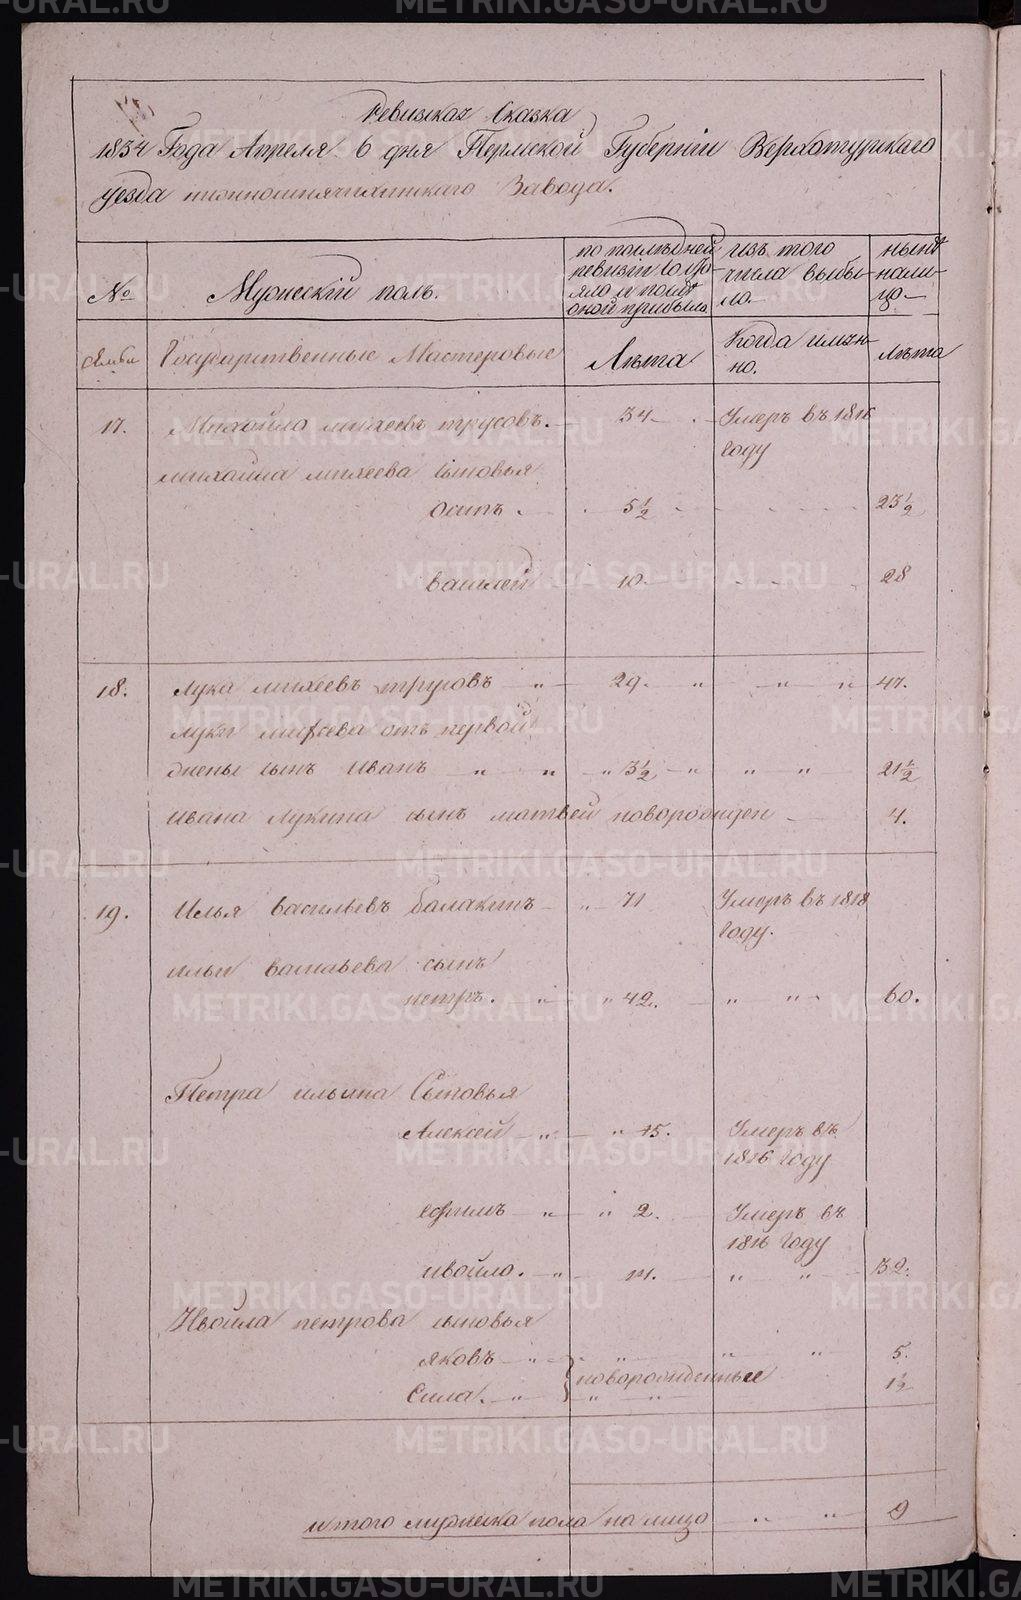 Ревизская Сказка
1834 Года Апреля 6 дня Пермской Губернии Верхотурскаго
уезда Завода.
№
Мужеский полъ.
по последней ревизiи состояло и после оной прибыло.
изъ того числа выбыло.
ныне на лицо
семьи
Государственные Мастеровые
Лета
Когда именно.
лета
17. Михайла михеевъ трусовъ. 34 Умеръ въ 1816 году
михайла михеева сыновья
осипъ 5 1/2 23 1/2
василей 10 28
18. лука михеевъ трусовъ 29. 47.
луки михеева отъ первой
жены сынъ Иванъ 3 1/2 21 1/2
ивана лукина сынъ матвей новорожден 4.
19. Илья васильевъ балакинъ 71 Умеръ въ 1818 году.
ильи васильева сынъ
петръ. 42. 60.
Петра ильина Сыновья
Алексей 15. Умеръ въ 1816 году
ефимъ 2. Умеръ въ 1816 году
ивойло. 14. 32.
Ивойла петрова сыновья
яковъ 5.
новорожденные
Сила. 1 1/2
итого мужеска пола на лицо 9
METRIKI.GASO-URAL.RU